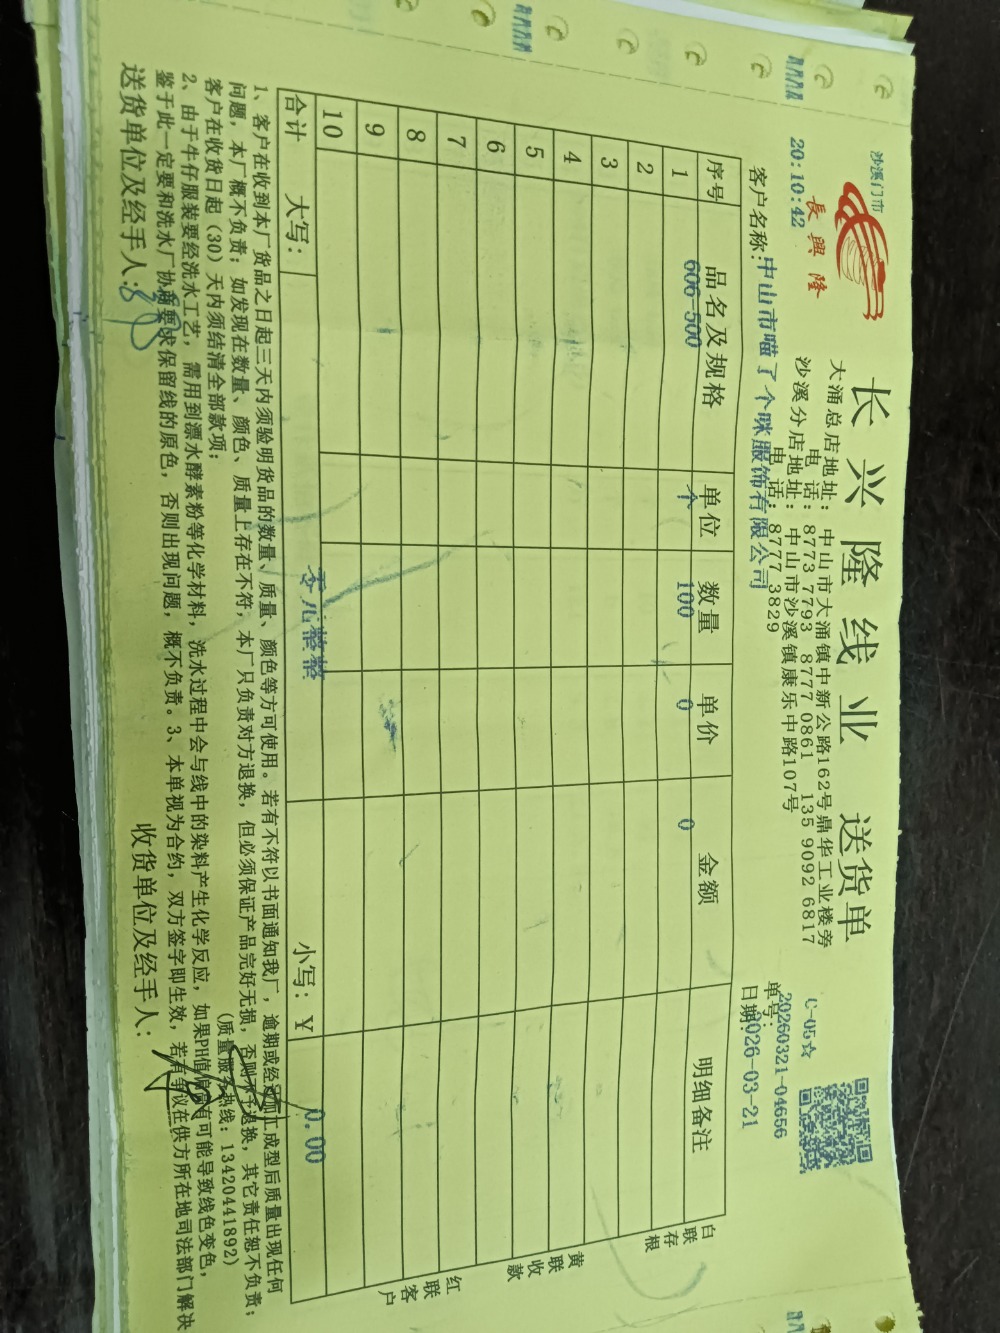 沙溪门市
長興隆
20:10:42
长兴隆线业 送货单
大涌总店地址: 中山市大涌镇中新公路162号鼎华工业楼旁
电 话: 8773 7793 8777 0861 135 9092 6817
沙溪分店地址: 中山市沙溪镇康乐中路107号
电 话: 8777 3829
C-05☆
单号: 20260321-04656
客户名称: 中山市喵了个咪服饰有限公司
日期: 2026-03-21
序号 品名及规格 单位 数量 单价 金额 明细备注
1 606-500 个 100 0 0
2
3
4
5
6
7
8
9
10
合计 大写: 零元整整 小写: ¥ 0.00
白联存根
黄联收款
红联客户
1、客户在收到本厂货品之日起三天内须验明货品的数量、质量、颜色等方可使用。若有不符以书面通知我厂,逾期或经加工成型后质量出现任何
问题,本厂概不负责;如发现在数量、颜色、质量上存在不符,本厂只负责对方退换,但必须保证产品完好无损,否则不予退换,其它责任恕不负责;
客户在收货日起(30)天内须结清全部款项;
(质量服务热线: 13420441892)
2、由于牛仔服装要经洗水工艺,需用到漂水酵素粉等化学材料,洗水过程中会与线中的染料产生化学反应,如果PH值偏高有可能导致线色变色,
鉴于此一定要和洗水厂协商要求保留线的原色,否则出现问题,概不负责。3、本单视为合约,双方签字即生效,若有争议在供方所在地司法部门解决
送货单位及经手人:
收货单位及经手人: